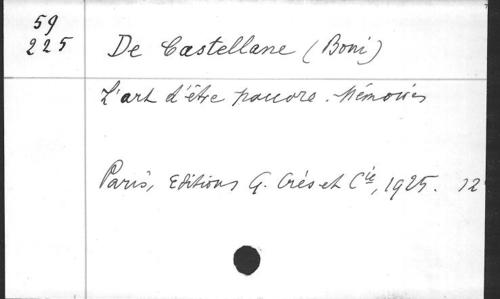 59
225
De Castellane (Boni)
L'art d'être pauvre. Mémoires
Paris, Editions G. Crès et Cie, 1925. 12